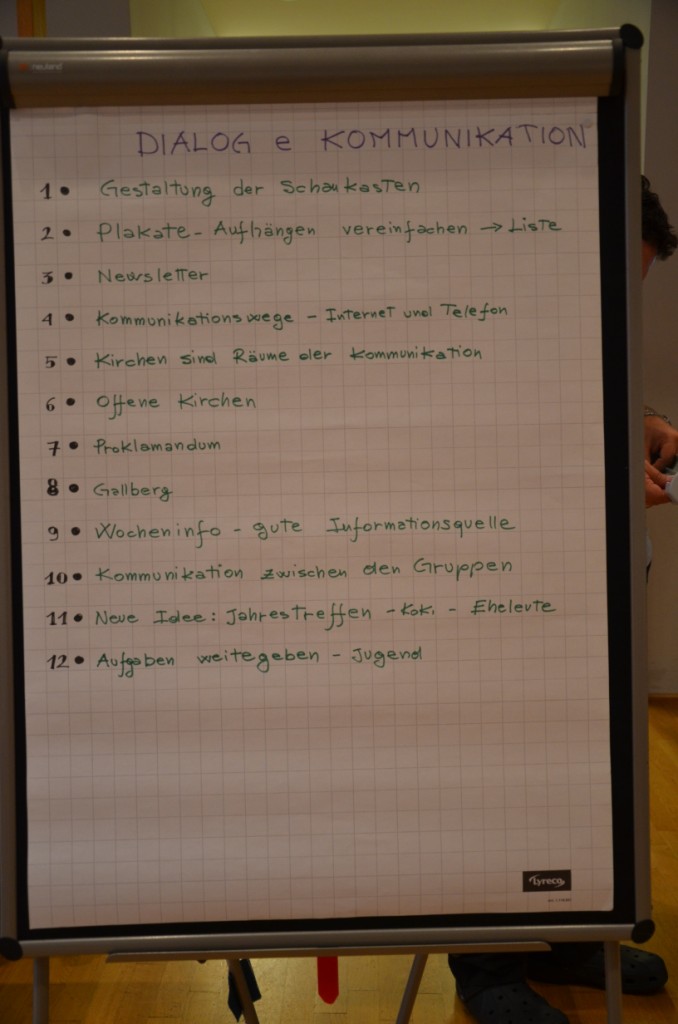 neuland
DIALOG e KOMMUNIKATION
1 • Gestaltung der Schaukasten
2 • Plakate - Aufhängen vereinfachen → Liste
3 • Newsletter
4 • Kommunikationswege - Internet und Telefon
5 • Kirchen sind Räume der Kommunikation
6 • Offene Kirchen
7 • Proklamandum
8 • Gallberg
9 • Wocheninfo - gute Informationsquelle
10 • Kommunikation zwischen den Gruppen
11 • Neue Idee: Jahrestreffen - Koki - Eheleute
12 • Aufgaben weitegeben - Jugend
Lyreco